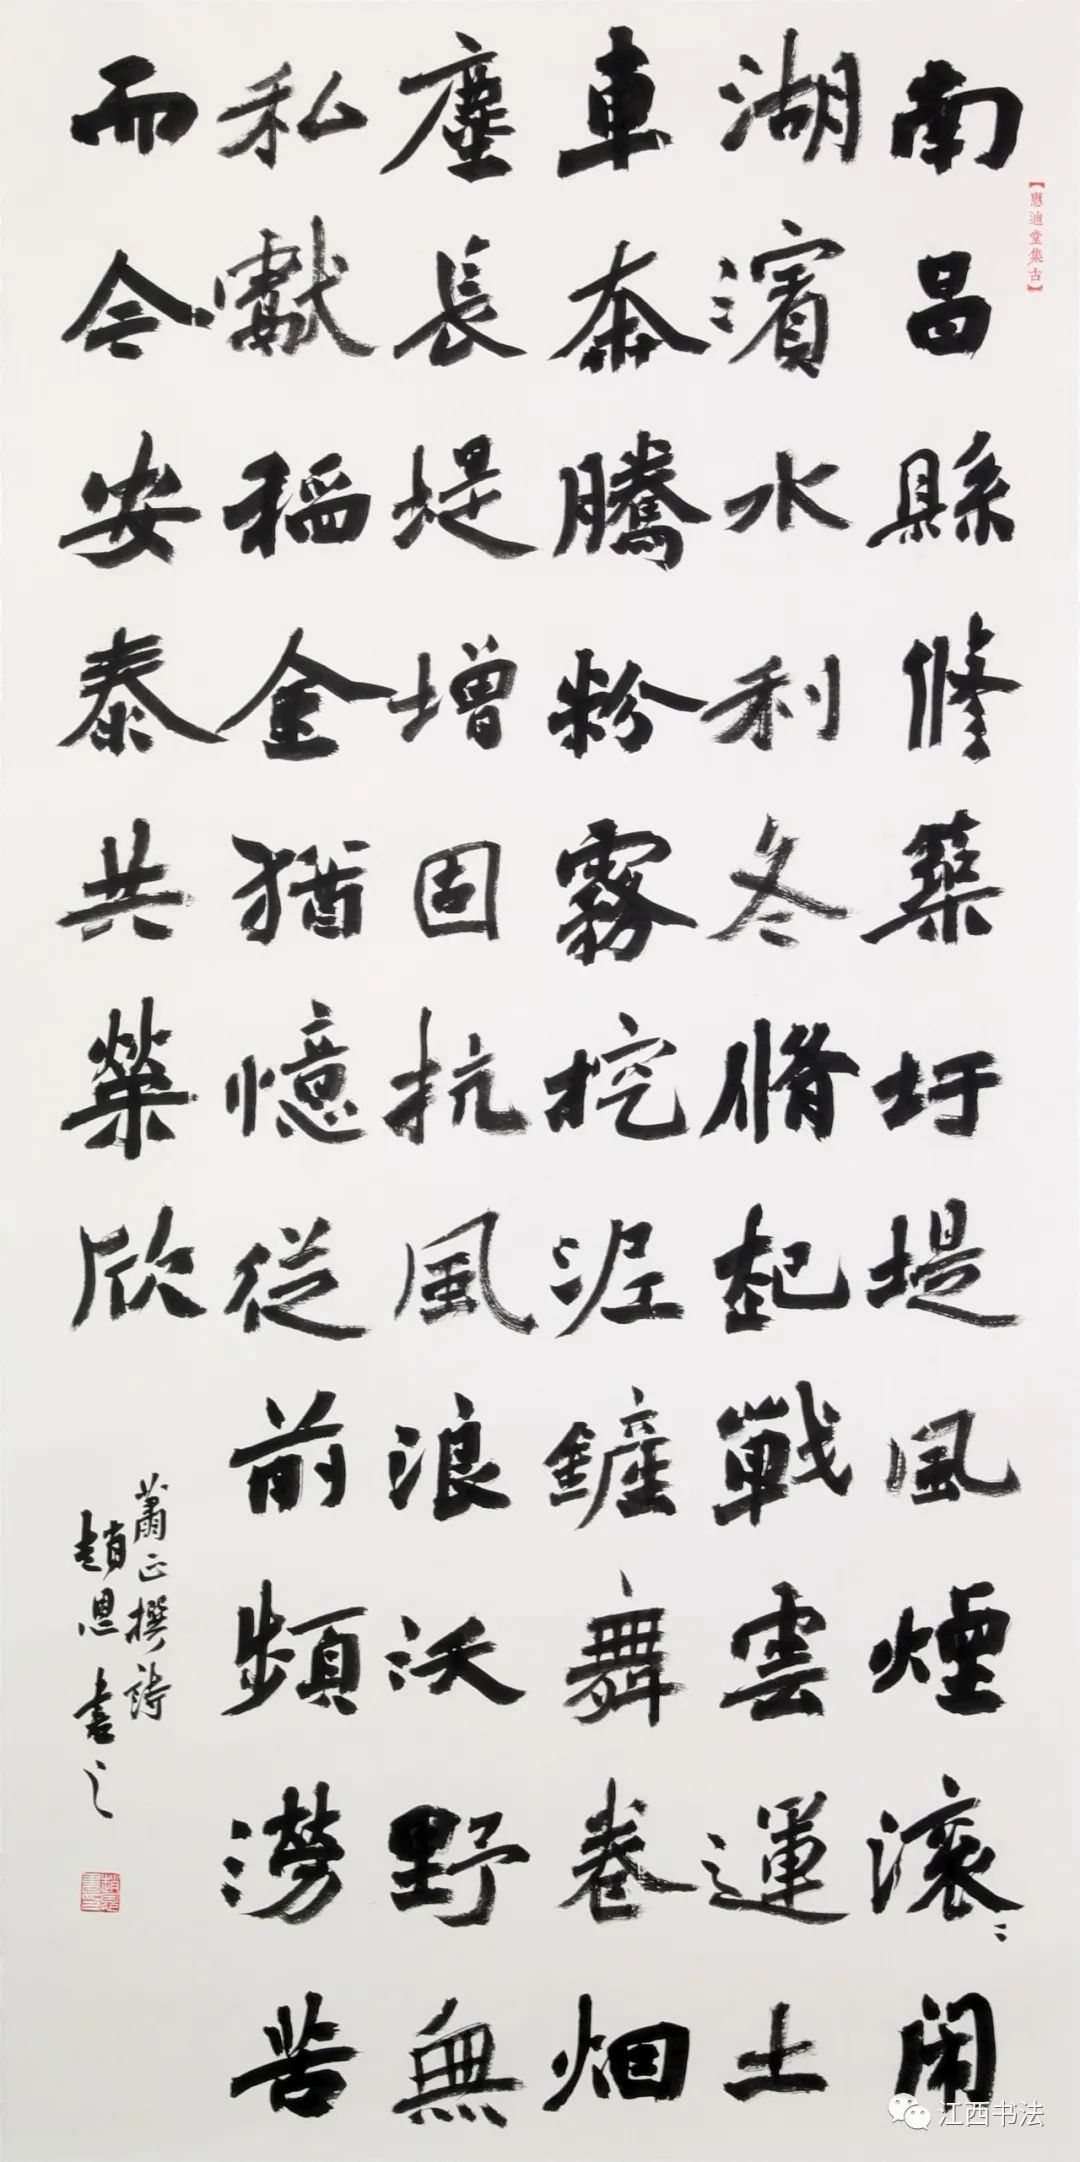 南昌縣修築圩堤風煙滾〻鬧
湖濱水利冬脩起戰雲運土
車奔騰粉霧挖泥鏟舞卷烟
塵長堤增固抗風浪沃野無
私獻稻金猶憶從前頻澇苦
而今安泰共榮欣
蕭正撰詩
趙恩書之
【應迪堂集古】
江西书法